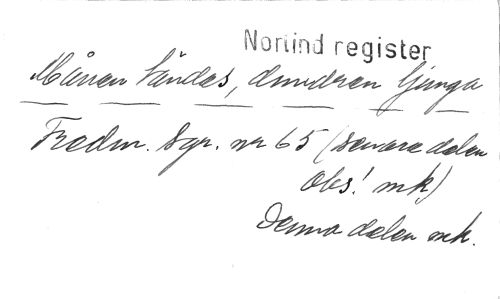 Norlind register
Månen tändes, dundren ljunga
Fredm. Sgr. nr 65 (senare delen
Obs! mk)
Denna delen mk.